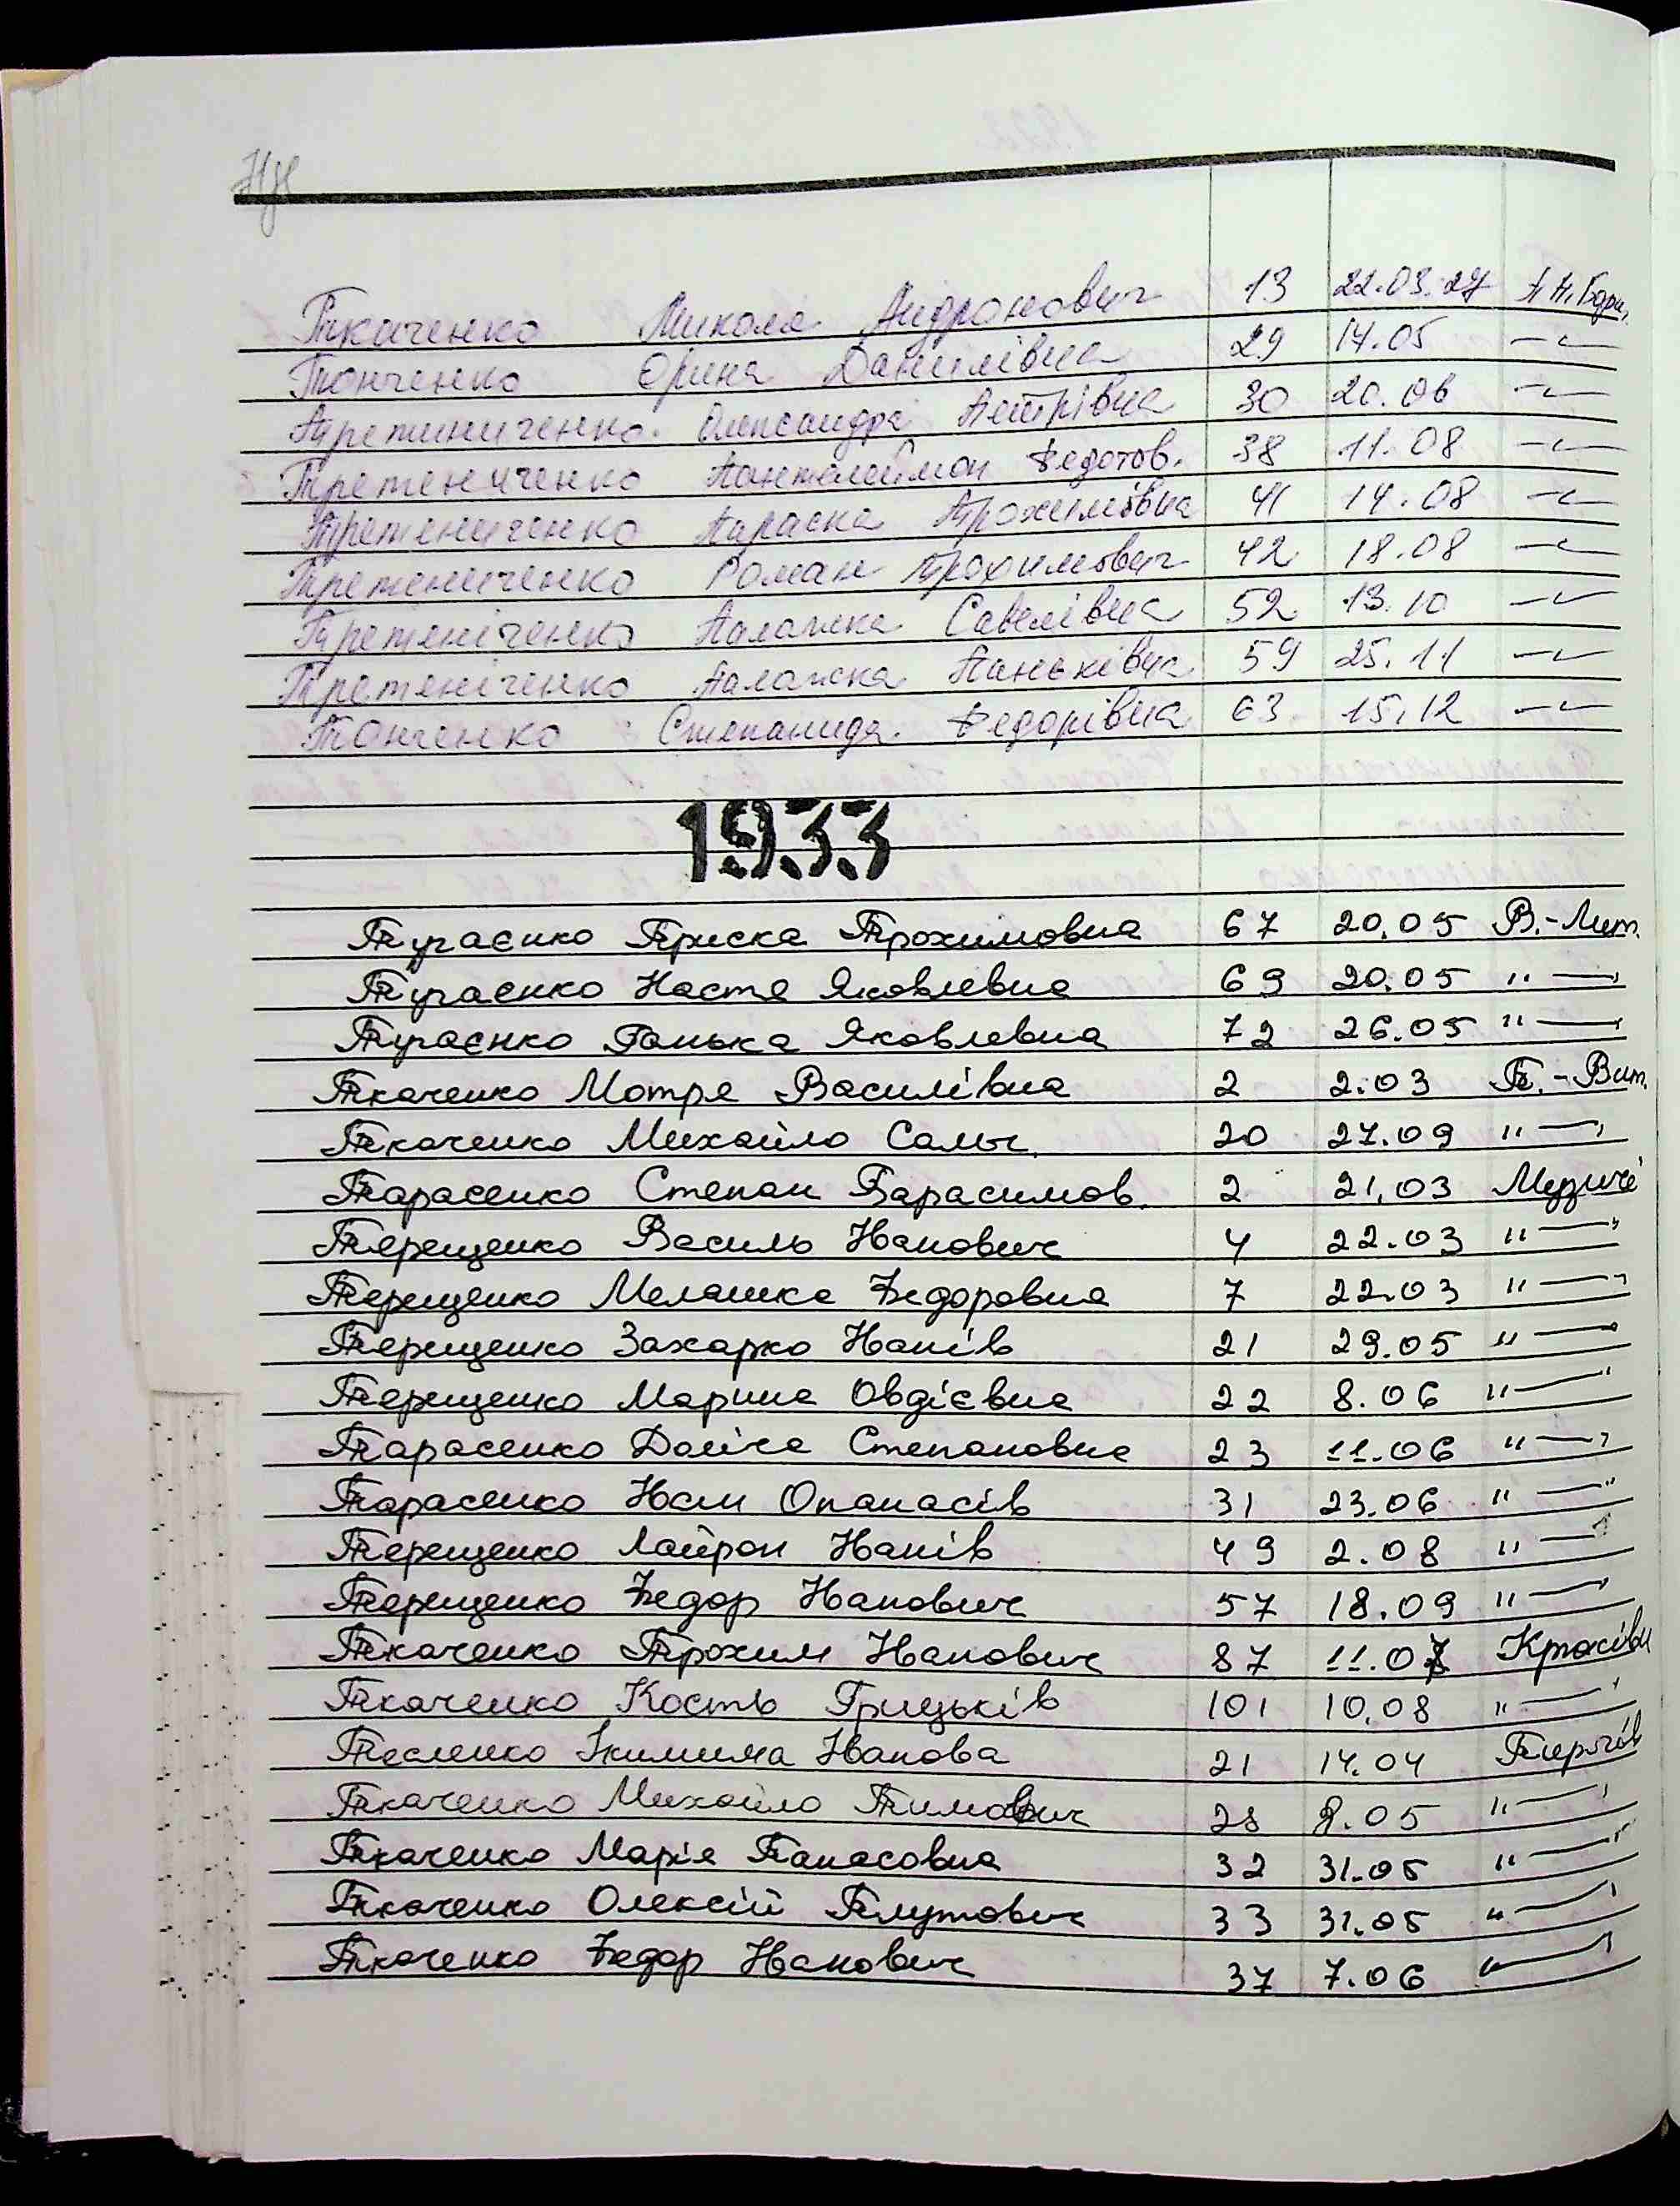 Ткаченко Микола Андронович 13 22.03.27 П.П.Борщ.
Тонченко Орина Данилівна 29 14.05 -"-
Третиниченко. Олександра Петрівна 30 20.06 -"-
Третениченко Пантелеймон Федотов. 38 11.08 -"-
Третениченко Параска Трохимівна 41 14.08 -"-
Третениченко Роман Трохимович 42 18.08 -"-
Третеніченко Палажка Савелівна 52 13.10 -"-
Третеніченко Палажка Паньківна 59 25.11 -"-
Тонченко Степанида Федорівна 63 15.12 -"-
1933
Тугаєнко Приска Трохимовна 67 20.05 В.-Лит.
Тугаєнко Настя Яковлевна 69 20.05 "—"
Тугаєнко Ганька Яковлевна 72 26.05 "—"
Ткаченко Мотря Василівна 2 2.03 П.-Вит.
Ткаченко Михайло Сам. 20 27.09 "—"
Тарасенко Степан Гарасимов. 2 21.03 Музичі
Терещенко Василь Іванович 4 22.03 "—"
Терещенко Мелашка Федоровна 7 22.03 "—"
Терещенко Захарко Іванів 21 29.05 "—"
Терещенко Марина Овдієвна 22 8.06 "—"
Тарасенко Степановна 23 11.06 "—"
Тарасенко Іван Опанасів 31 23.06 "—"
Терещенко Іванів 49 2.08 "—"
Терещенко Федор Іванович 57 18.09 "—"
Ткаченко Трохим Іванович 87 11.07
Ткаченко Кость Грицьків 101 10.08 "—"
Тесленко Якимина Іванова 21 14.04
Ткаченко Михайло Тимович 28 8.05 "—"
Ткаченко Марія Панасовна 32 31.05 "—"
Ткаченко Олексій Плутович 33 31.05 "—"
Ткаченко Федор Іванович 37 7.06 "—"